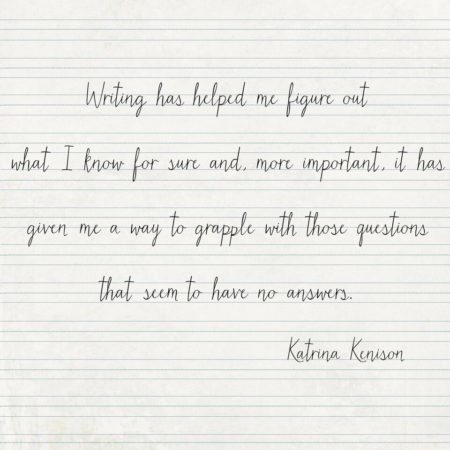 Writing has helped me figure out
what I know for sure and, more important, it has
given me a way to grapple with those questions
that seem to have no answers.
Katrina Kenison